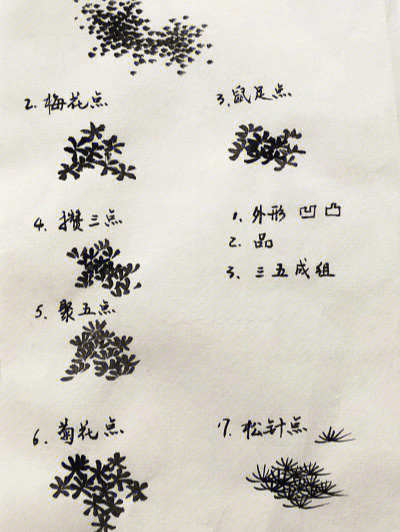 2. 梅花点
3. 鼠足点
4. 攒三点
1. 外形 凹凸
2. 品
3. 三五成组
5. 聚五点
6. 菊花点
7. 松针点